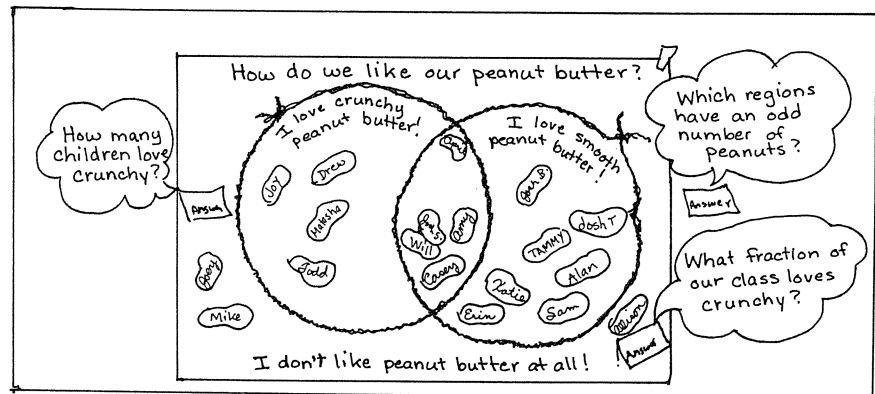 How do we like our peanut butter?
I love crunchy
peanut butter!
I love smooth
peanut butter!
How many
children love
crunchy?
Answer
Which regions
have an odd
number of
peanuts?
Answer
What fraction of
our class loves
crunchy?
Answer
Joy
Drew
Natasha
Todd
Amy
Will
Casey
Josh B.
Josh T
TAMMY
Alan
Katie
Erin
Sam
Mike
I don't like peanut butter at all!